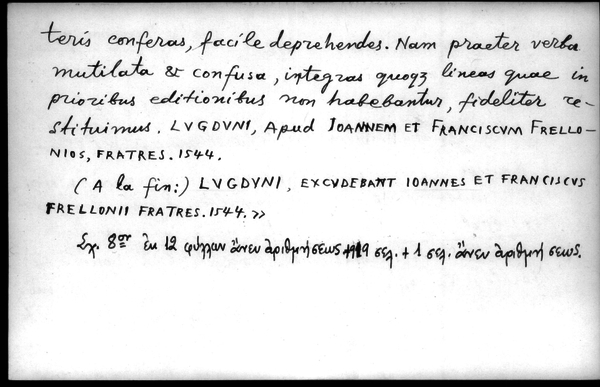 teris conferas, facile deprehendes. Nam praeter verba
mutilata & confusa, integras quoqʒ lineas quae in
prioribus editionibus non habebantur, fideliter re-
stituimus. LVGDVNI, Apud IOANNEM ET FRANCISCVM FRELLO-
NIOS, FRATRES. 1544.
(A la fin:) LVGDVNI, EXCVDEBANT IOANNES ET FRANCISCVS
FRELLONII FRATRES. 1544. »
Σχ. 8ον ἐκ 12 φύλλων ἄνευ ἀριθμήσεως + 919 σελ. + 1 σελ. ἄνευ ἀριθμήσεως.